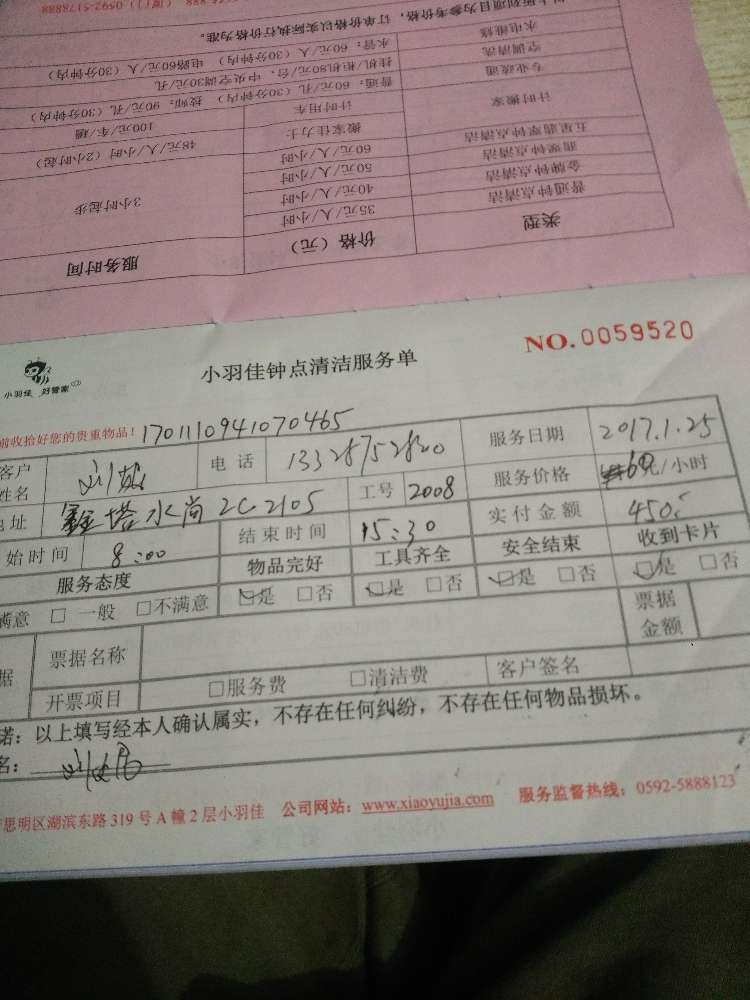 订单价格以实际执行价格为准。
类型 价格（元） 服务时间
普通钟点清洁 35元/人/小时 3小时起步
金牌钟点清洁 40元/人/小时
翡翠钟点清洁 50元/人/小时
五星翡翠钟点清洁 60元/人/小时
计时搬家 搬家佳力士 48元/人/小时（2小时起）
计时用车 100元/车/辆
专业疏通 普通：60元/孔（30分钟内） 技师：90元/孔（30分钟内）
空调清洗 挂机/柜机80元/台，中央空调30元/孔
水电维修 水管：60元/人（30分钟内） 电路60元/人（30分钟内）
小羽佳 好管家
小羽佳钟点清洁服务单
NO.0059520
收拾好您的贵重物品！
1701110941070465
客户姓名 电话 服务日期 2017.1.25
地址 鑫塔水尚2C2105 工号 2008 服务价格 60元/小时
始时间 8:00 结束时间 15:30 实付金额 450
服务态度 物品完好 工具齐全 安全结束 收到卡片
满意 □ 一般 □不满意 ☑是 □否 ☑是 □否 ☑是 □否 ☑是 □否
据 票据名称 票据金额
开票项目 □服务费 □清洁费 客户签名
诺：以上填写经本人确认属实，不存在任何纠纷，不存在任何物品损坏。
名：
思明区湖滨东路319号A幢2层小羽佳 公司网站：www.xiaoyujia.com 服务监督热线：0592-5888123